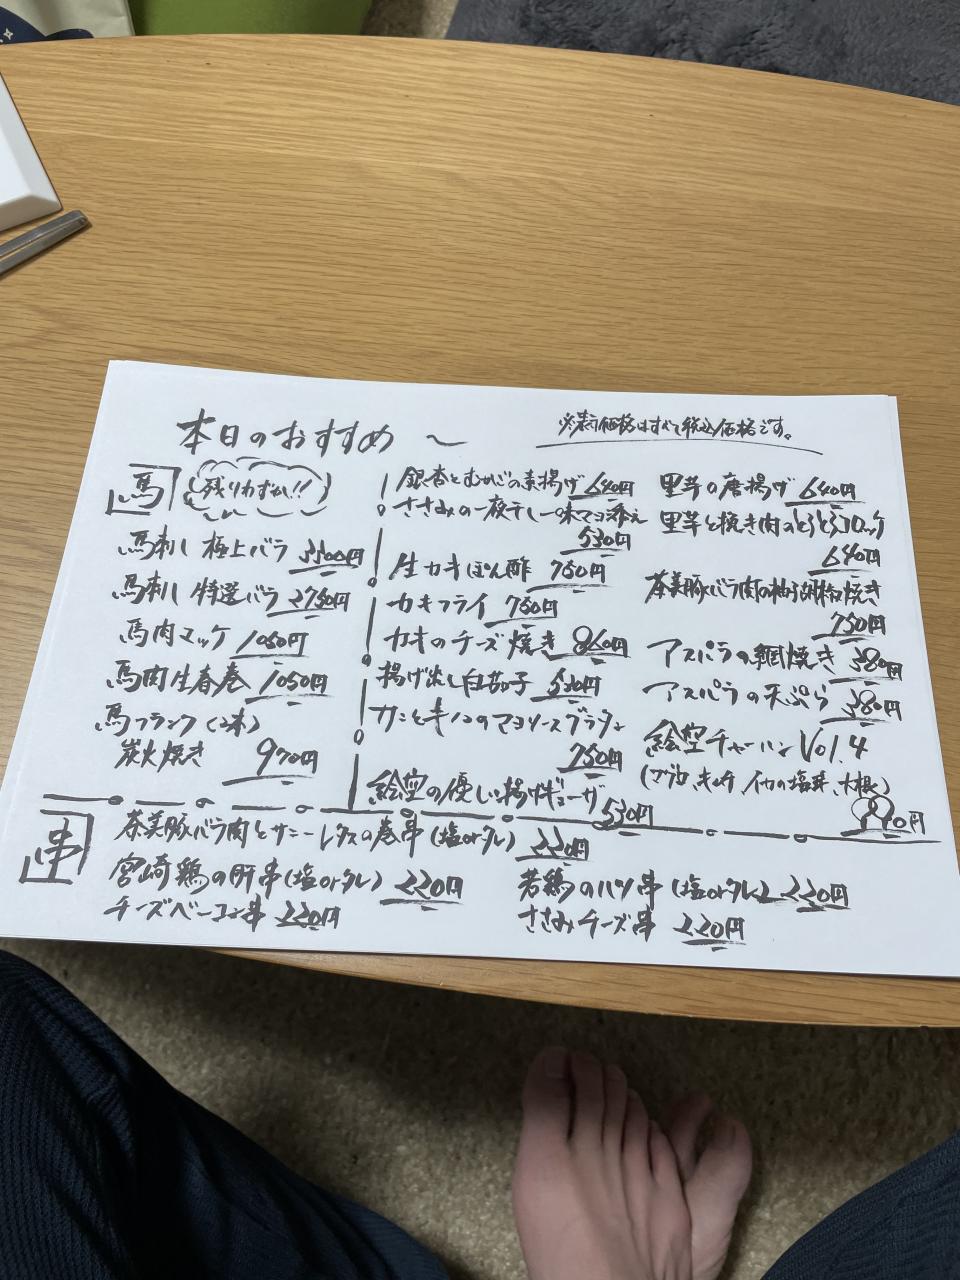 本日のおすすめ～
※表示価格はすべて税込価格です。
馬
残りわずか!!
馬刺し 極上バラ 3300円
馬刺し 特選バラ 2750円
馬肉マッケ 1050円
馬肉生春巻 1050円
馬フランク(2本)
炭火焼き 970円
銀杏とむかごの素揚げ 640円
ささみの一夜干し一味マヨ添え
530円
生カキぽん酢 750円
カキフライ 750円
カキのチーズ焼き 860円
揚げ出し白茄子 530円
カニとキノコのマヨソースグラタン
750円
絵空の優しい揚げギョーザ
530円
里芋の唐揚げ 640円
里芋と挽き肉のとろとろコロッケ
640円
茶美豚バラ肉の柚子胡椒焼き
750円
アスパラの網焼き 380円
アスパラの天ぷら 380円
絵空チャーハン Vol.4
イカの塩辛、大根)
串
茶美豚バラ肉とサニーレタスの巻串(塩orタレ) 220円
宮崎鶏の肝串(塩orタレ) 220円
若鶏のハツ串(塩orタレ) 220円
チーズベーコン串 220円
ささみチーズ串 220円